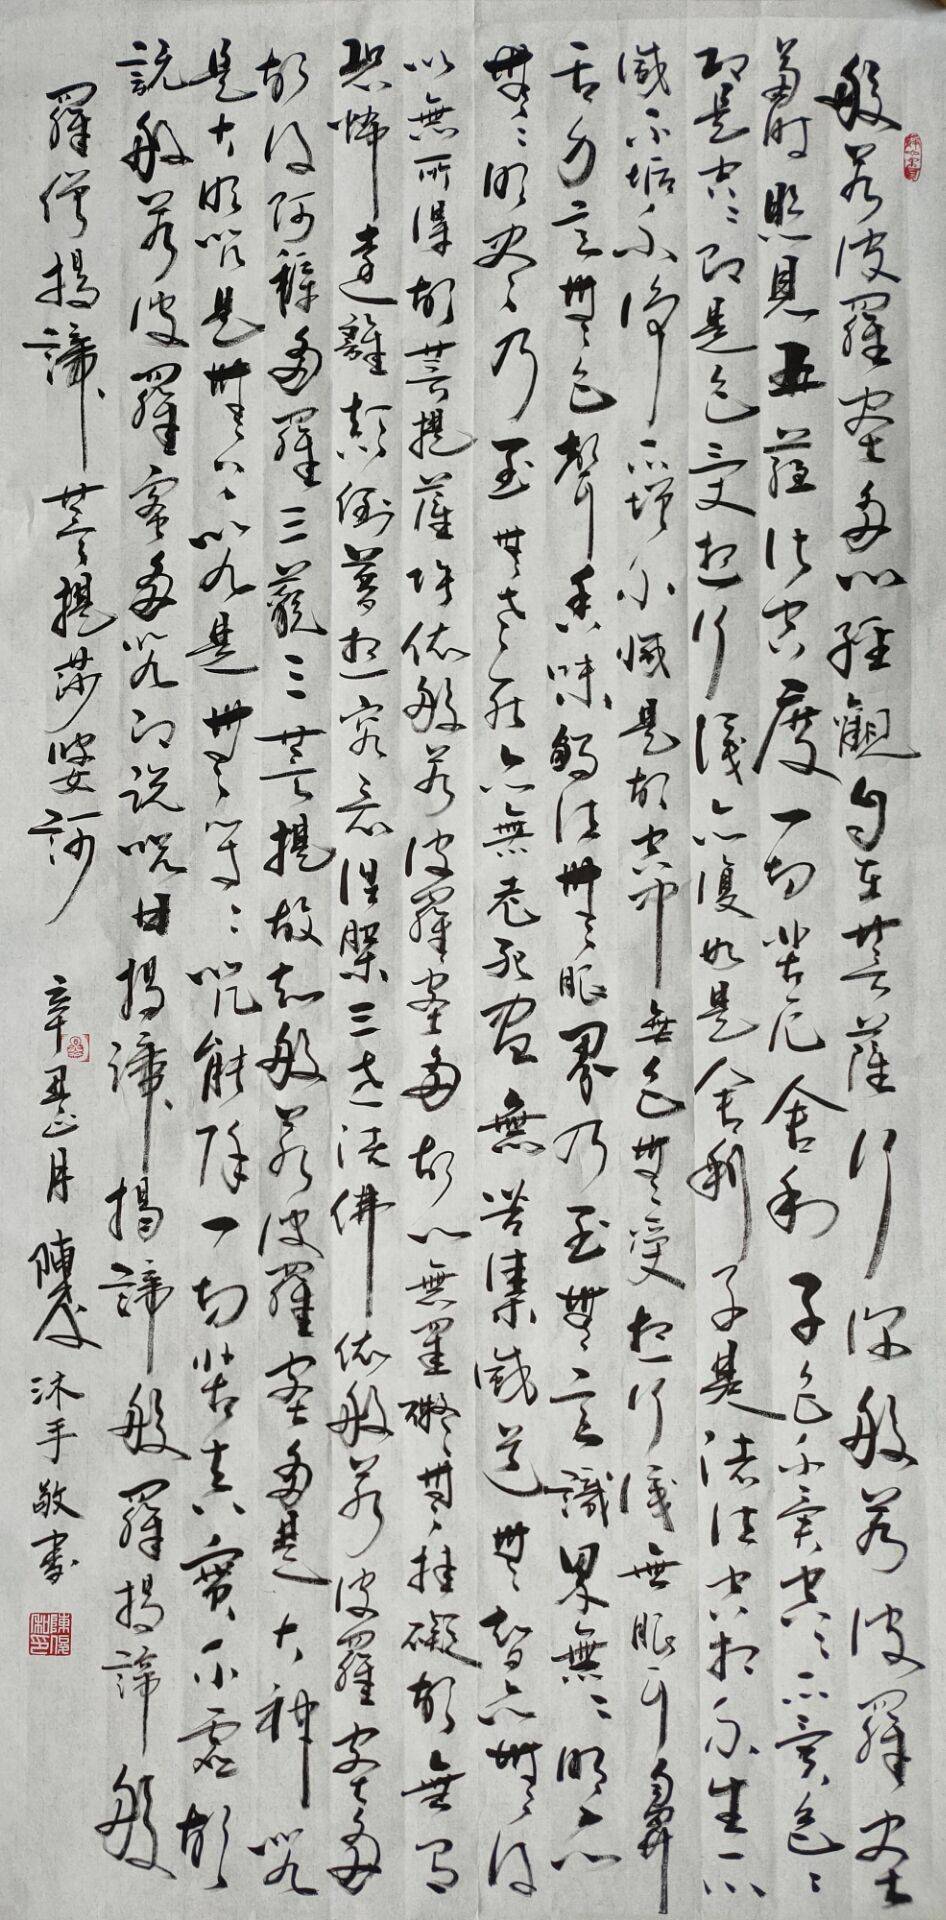 般若波羅蜜多心經觀自在菩薩行深般若波羅蜜
多時照見五蘊皆空度一切苦厄舍利子色不異空空不異色色
即是空空即是色受想行識亦復如是舍利子是諸法空相不生不
滅不垢不淨不增不減是故空中無色無受想行識無眼耳鼻
舌身意無色聲香味觸法無眼界乃至無意識界無無明亦
無無明盡乃至無老死亦無老死盡無苦集滅道無智亦無得
以無所得故菩提薩埵依般若波羅蜜多故心無罣礙無掛礙故無有
恐怖遠離顛倒夢想究竟涅槃三世諸佛依般若波羅蜜多
故得阿耨多羅三藐三菩提故知般若波羅蜜多是大神咒
是大明咒是無上咒是無等等咒能除一切苦真實不虛故
說般若波羅蜜多咒即說咒曰揭諦揭諦般羅揭諦般
羅僧揭諦菩提莎婆訶
辛丑正月陳俊沐手敬書